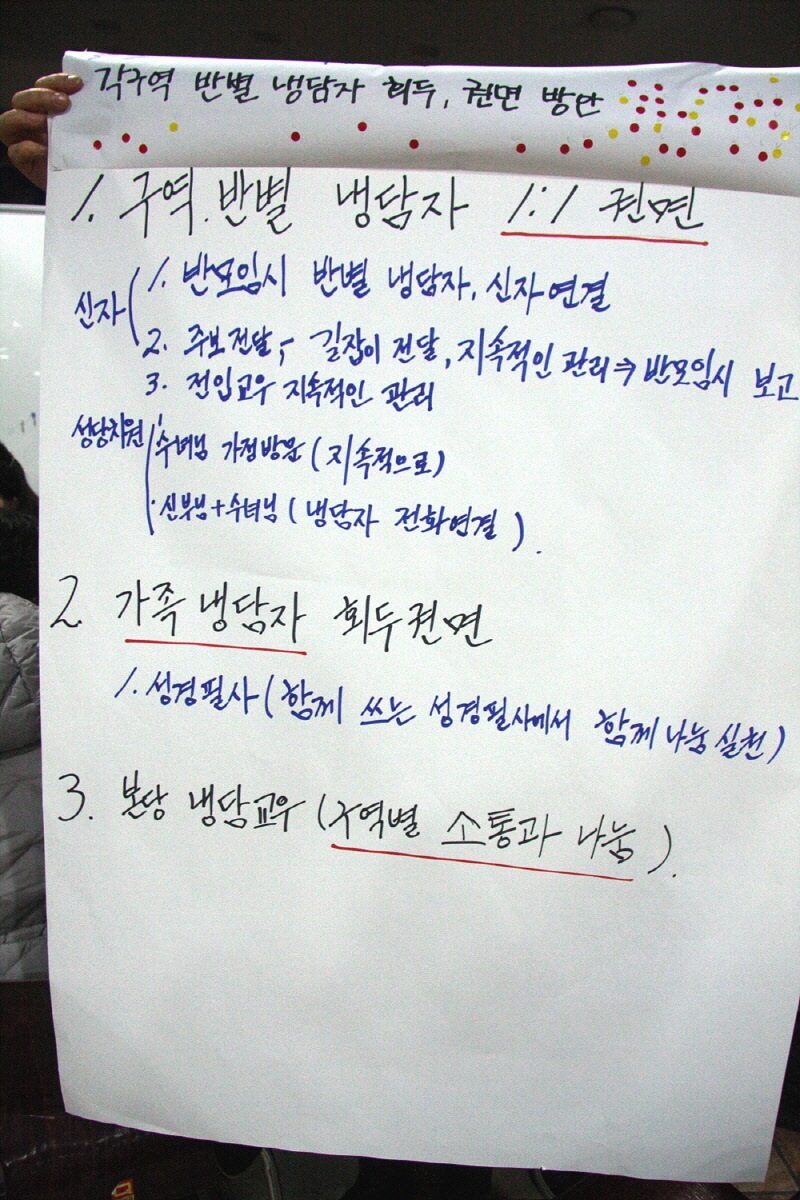 각구역 반별 냉담자 회두, 권면 방안
1. 구역.반별 냉담자 1:1 권면
신자 1. 반모임시 반별 냉담자, 신자연결
2. 주보전달, 길잡이 전달, 지속적인 관리 ⇒ 반모임시 보고
3. 전입교우 지속적인 관리
성당차원 · 수녀님 가정방문 (지속적으로)
· 신부님+수녀님 (냉담자 전화연결).
2. 가족 냉담자 회두권면
1. 성경필사 (함께 쓰는 성경필사에서 함께 나눔 실천)
3. 본당 냉담교우 (구역별 소통과 나눔).